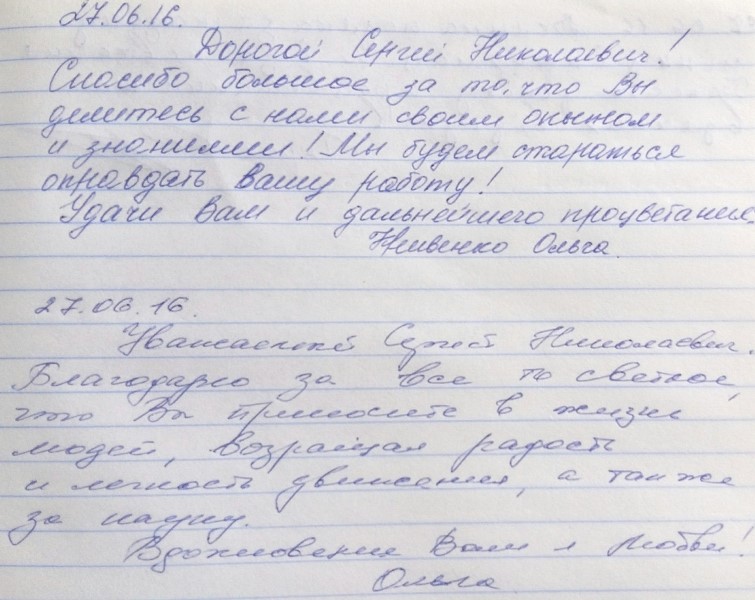 27.06.16.
Дорогой Сергей Николаевич!
Спасибо большое за то, что Вы
делитесь с нами своим опытом
и знаниями! Мы будем стараться
оправдать Вашу работу!
Удачи Вам и дальнейшего процветания.
Ольга.
27.06.16.
Уважаемый Сергей Николаевич.
Благодарю за все то светлое,
что Вы приносите в жизнь
людей, возращая радость
и легкость движения, а также
за науку.
Вдохновения Вам и любви!
Ольга